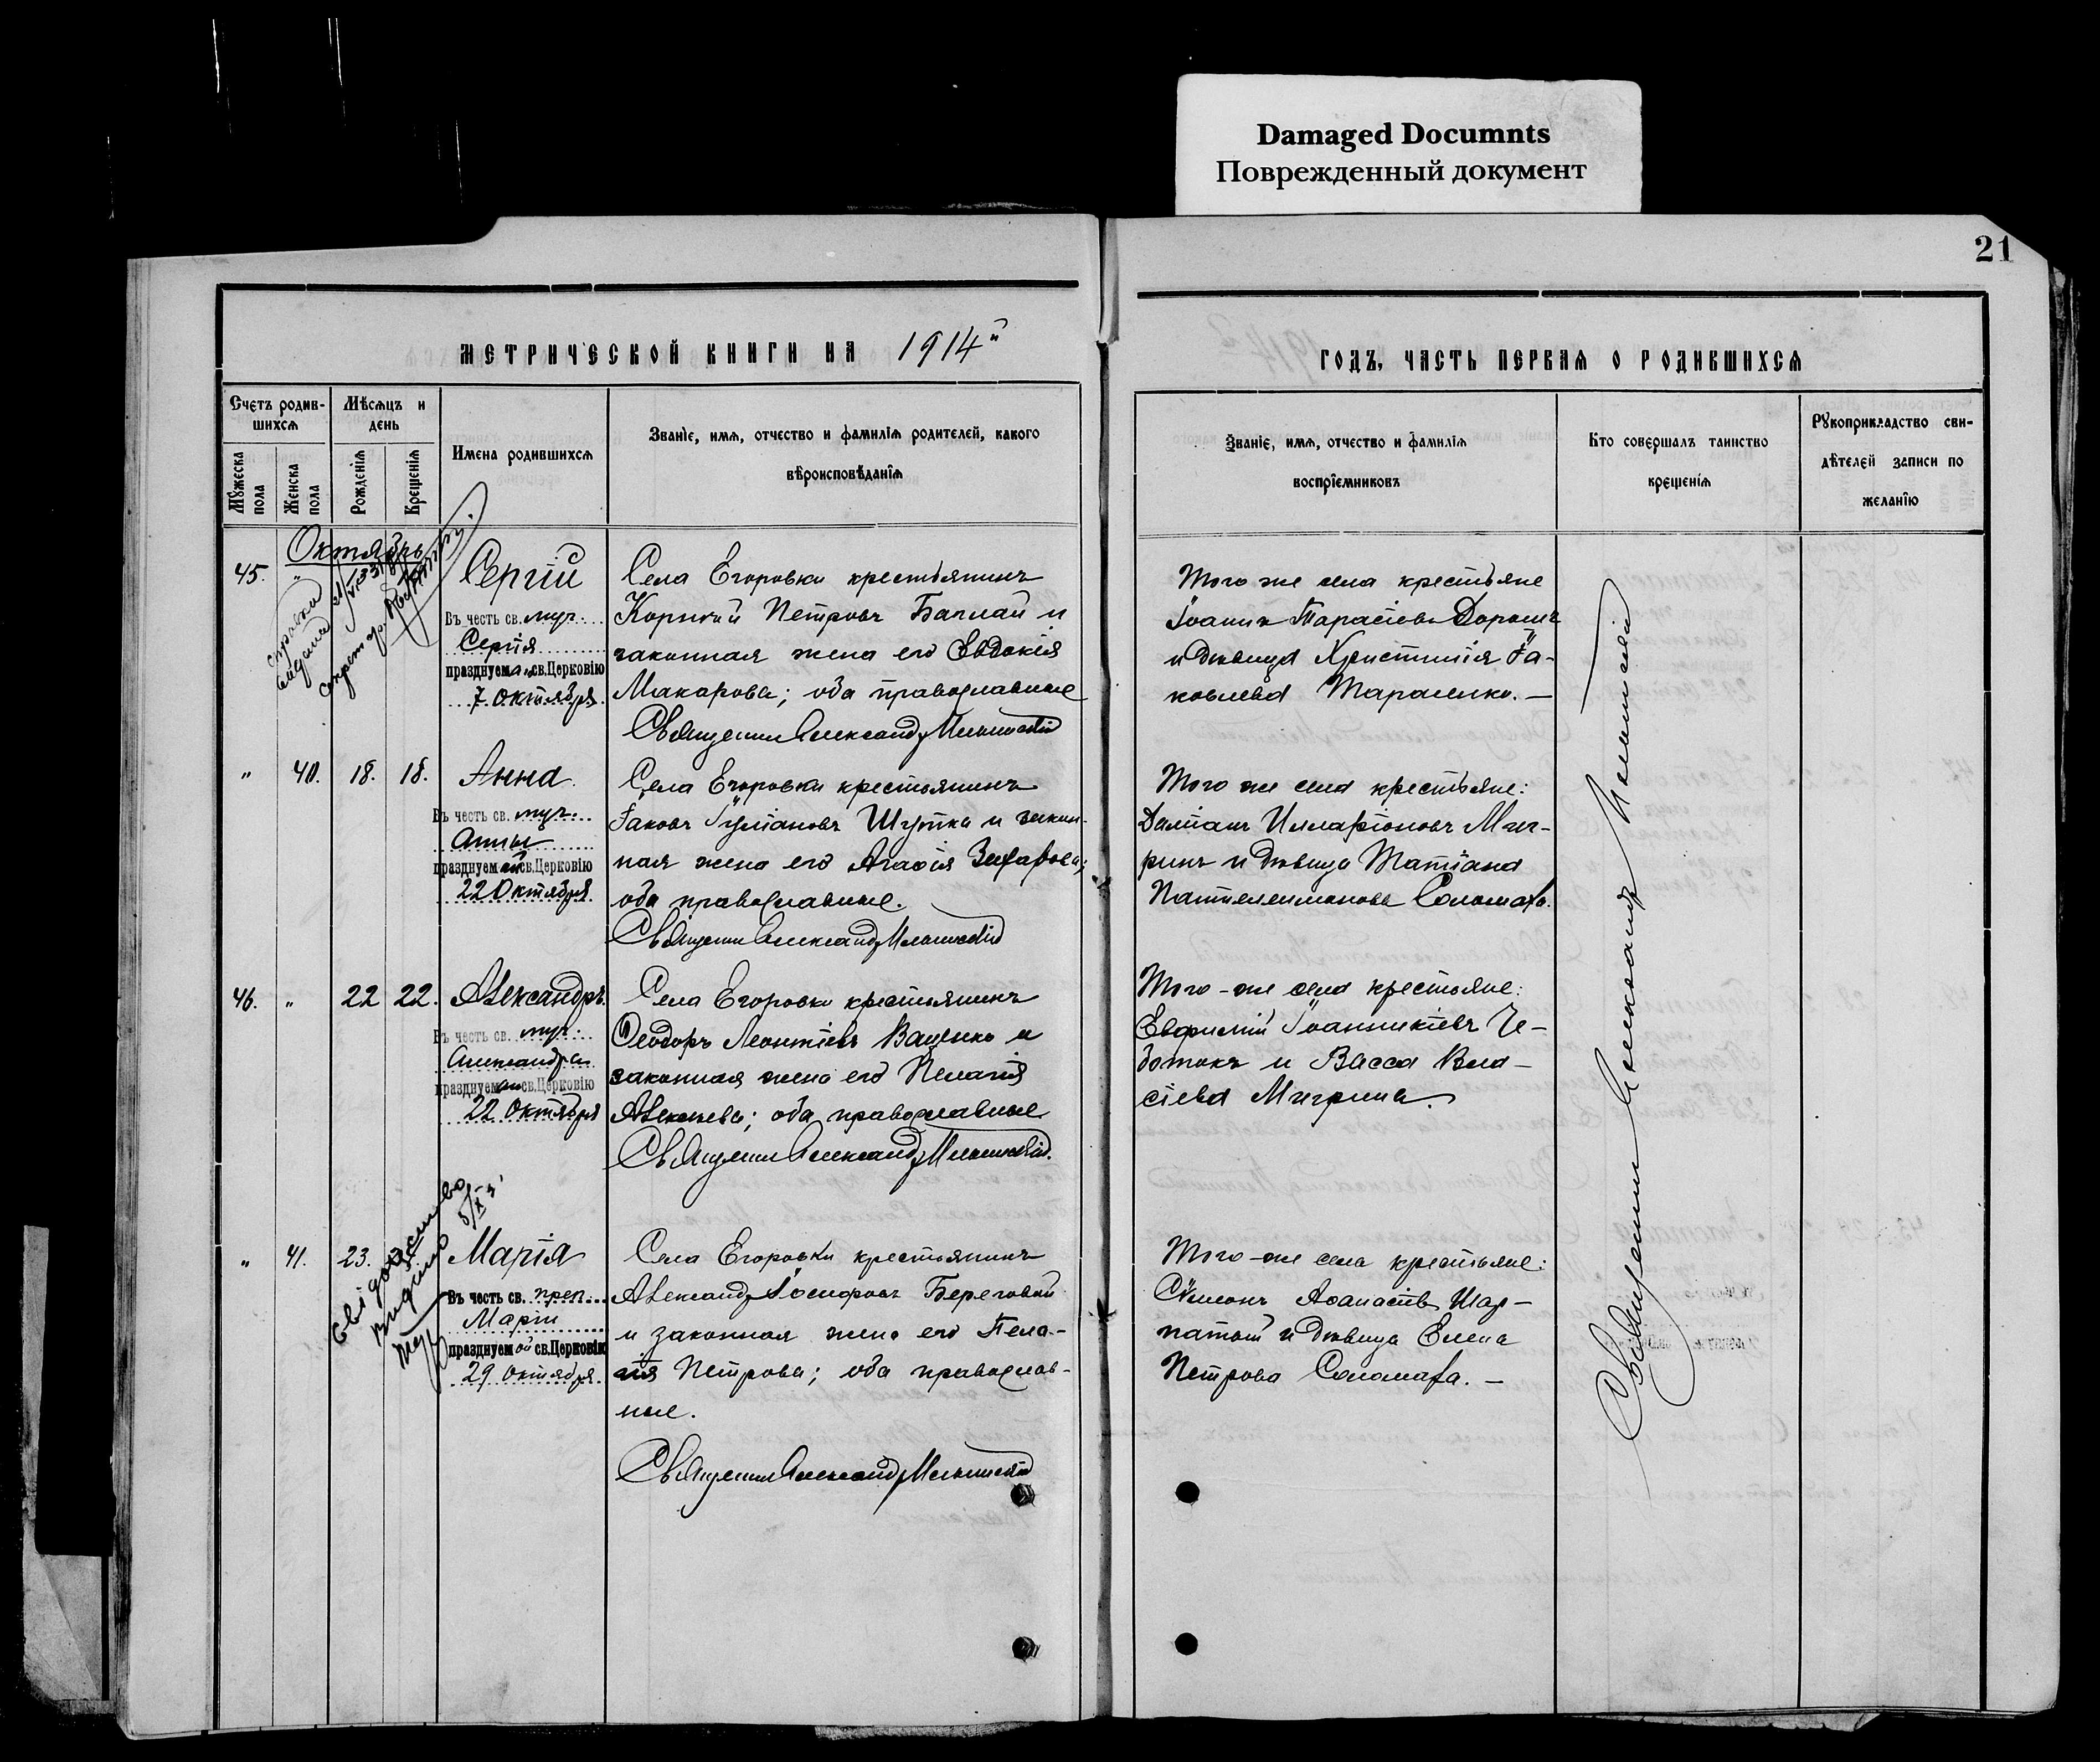 Damaged Documnts
Поврежденный документ
21
МЕТРИЧЕСКОЙ КНИГИ НА 1914й
ГОДЪ, ЧАСТЬ ПЕРВАЯ О РОДИВШИХСЯ
Счетъ родив-
шихся
Мѣсяцъ и
день
Мужеска
пола
Женска
пола
Рожденія
Крещенія
Имена родившихся
Званіе, имя, отчество и фамилія родителей, какого
вѣроисповѣданія
Званіе, имя, отчество и фамилія
воспріемниковъ
Кто совершалъ таинство
крещенія
Рукоприкладство сви-
дѣтелей записи по
желанію
Октябрь
45. "
справка
выдана
Сергій
Въ честь св. муч.
Сергія
празднуем св.Церковію
7 Октября
Села Егоровки крестьянинъ
Корнилій Петровъ Баглай и
законная жена его Евдокія
Макарова; оба православные
Священникъ Александръ
Того же села крестьяне
Іоаннъ Тарасіевъ
и дѣвица Христинія Іа-
ковлева Тараненко. —
" 40. 18. 18. Анна
Въ честь св. муч.
Анны
празднуемой св.Церковію
22 Октября
Села Егоровки крестьянинъ
Іаковъ Іуліановъ Шутка и закон-
ная жена его Агафія
оба православные.
Священникъ Александръ
Того же села крестьяне:
Даміанъ Илларіоновъ Миг-
ринъ и дѣвица Татіана
Пантелеимонова Соломаха.
46. " 22 22. Александръ
Въ честь св. муч.
Александра
празднуем св.Церковію
22 Октября
Села Егоровки крестьянинъ
Ѳеодоръ Леонтіевъ Ваценко и
законная жена его Пелагія
Алексѣева; оба православные
Священникъ Александръ
Того-же села крестьяне:
Евфимій Іоанникіевъ Че-
ботокъ и Васса Вла-
сіева Мигрина.
" 41. 23.
Свідоцтво
видано
Марія
Въ честь св. преп.
Маріи
празднуемой св.Церковію
29 Октября
Села Егоровки крестьянинъ
Александръ Іосифовъ Береговой
и законная жена его Пела-
гія Петрова; оба православ-
ные.
Священникъ Александръ
Того-же села крестьяне:
Сѵмеонъ Аѳанасіевъ Шар-
патый и дѣвица Елена
Петрова Соломаха. —
Священникъ Александръ